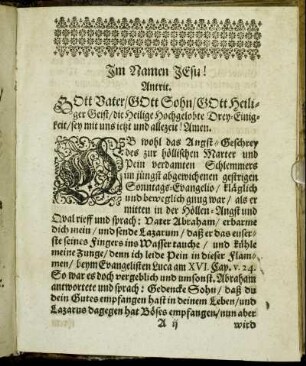 Im Namen JEsu!
Antrit.
GOtt Vater/GOtt Sohn/GOtt Heili-
ger Geist/die Heilige Hochgelobte Drey-Einig-
keit/sey mit uns ietzt und allezeit! Amen.
OB wohl das Angst-Geschrey
des zur höllischen Marter und
Pein verdamten Schlemmers
im jüngst abgewichenen gestrigen
Sonntags-Evangelio/ kläglich
und beweglich gnug war/ als er
mitten in der Höllen-Angst und
Qval rieff und sprach: Vater Abraham/ erbarme
dich mein/ und sende Lazarum/ daß er das euser-
ste seines Fingers ins Wasser tauche/ und kühle
meine Zunge/denn ich leide Pein in dieser Flam-
men/ beym Evangelisten Luca am XVI. Cap. v. 24.
So war es doch vergeblich und umsonst. Abraham
antwortete und sprach: Gedencke Sohn/ daß du
dein Gutes empfangen hast in deinem Leben/und
Lazarus dagegen hat Böses empfangen/nun aber
A ij wird